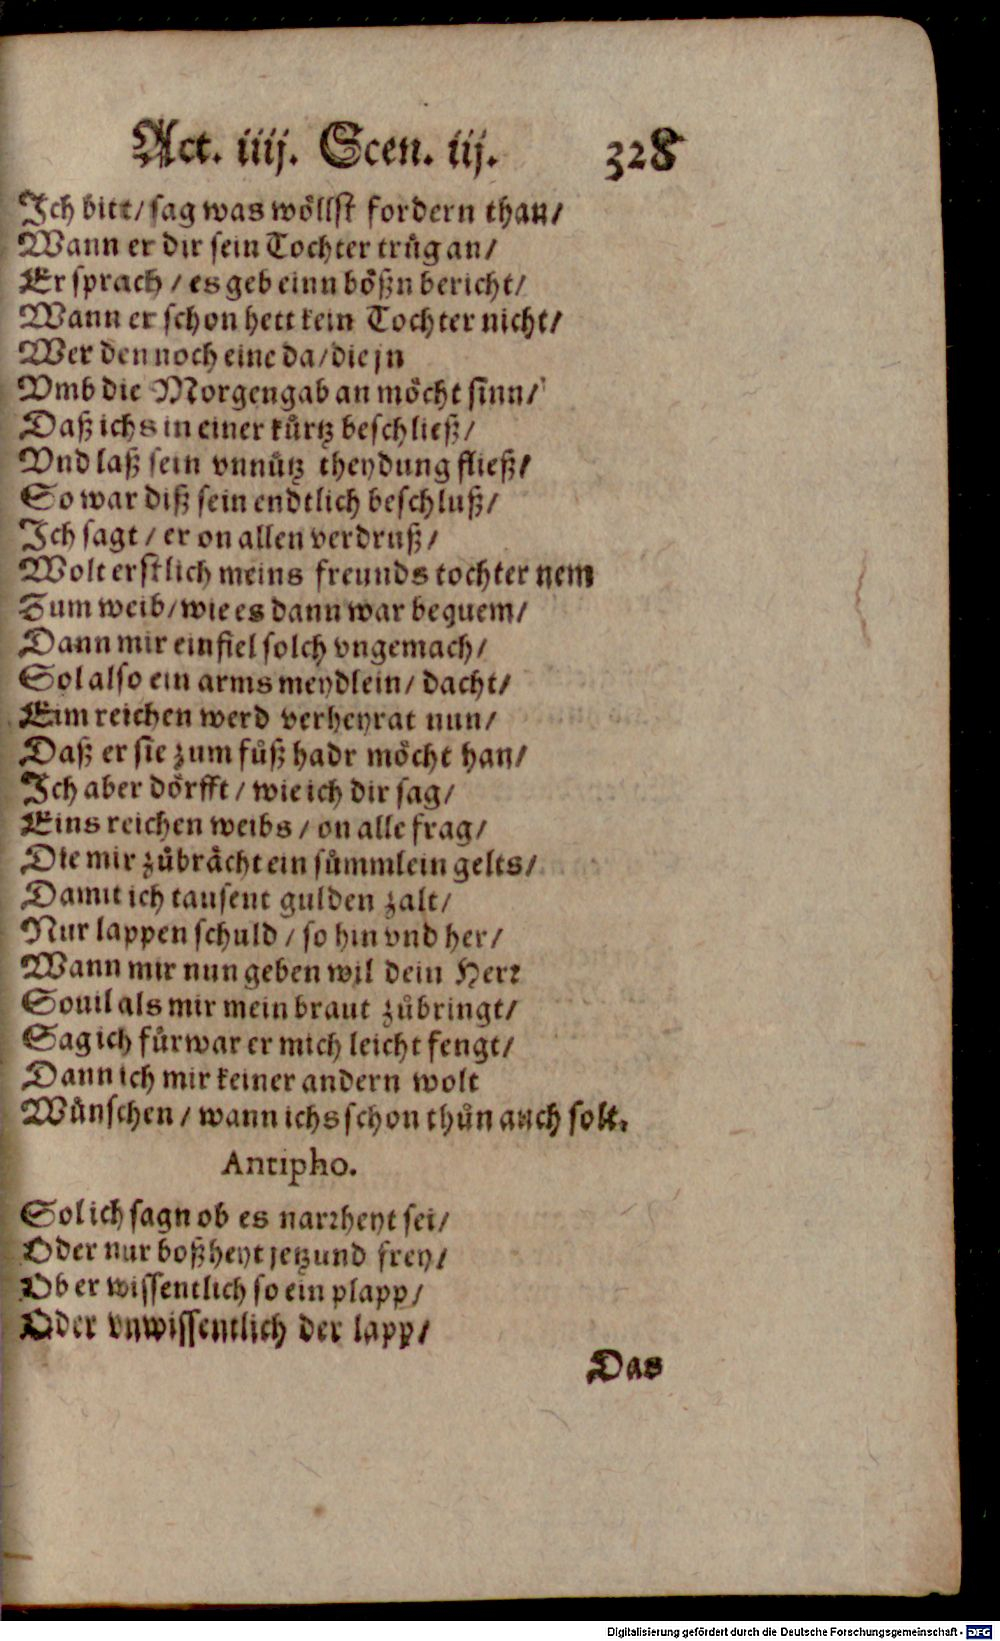 Act. iiij. Scen. iij. 328
Ich bitt/ sag was wöllst fordern than/
Wann er dir sein Tochter trůg an/
Er sprach / es geb einn bößn bericht/
Wann er schon hett kein Tochter nicht/
Wer den noch eine da/ die jn
Vmb die Morgengab an möcht sinn/
Daß ichs in einer kürtz beschließ/
Vnd laß sein vnnütz theydung fließ/
So war diß sein endtlich beschluß/
Ich sagt / er on allen verdruß/
Wolt erstlich meins freunds tochter nem
Zum weib/ wie es dann war bequem/
Dann mir einfiel solch vngemach/
Sol also ein arms meydlein/ dacht/
Eim reichen werd verheyrat nun/
Daß er sie zum fůß hadr möcht han/
Ich aber dörfft / wie ich dir sag/
Eins reichen weibs / on alle frag/
Die mir zůbrächt ein sümmlein gelts/
Damit ich tausent gulden zalt/
Nur lappen schuld / so hin vnd her/
Wann mir nun geben wil dein Herr
Souil als mir mein braut zůbringt/
Sag ich fürwar er mich leicht fengt/
Dann ich mir keiner andern wolt
Wünschen / wann ichs schon thůn auch solt.
Antipho.
Sol ich sagn ob es narrheyt sei/
Oder nur boßheyt jetzund frey/
Ob er wissentlich so ein plapp/
Oder vnwissentlich der lapp/
Das
Digitalisierung gefördert durch die Deutsche Forschungsgemeinschaft - DFG